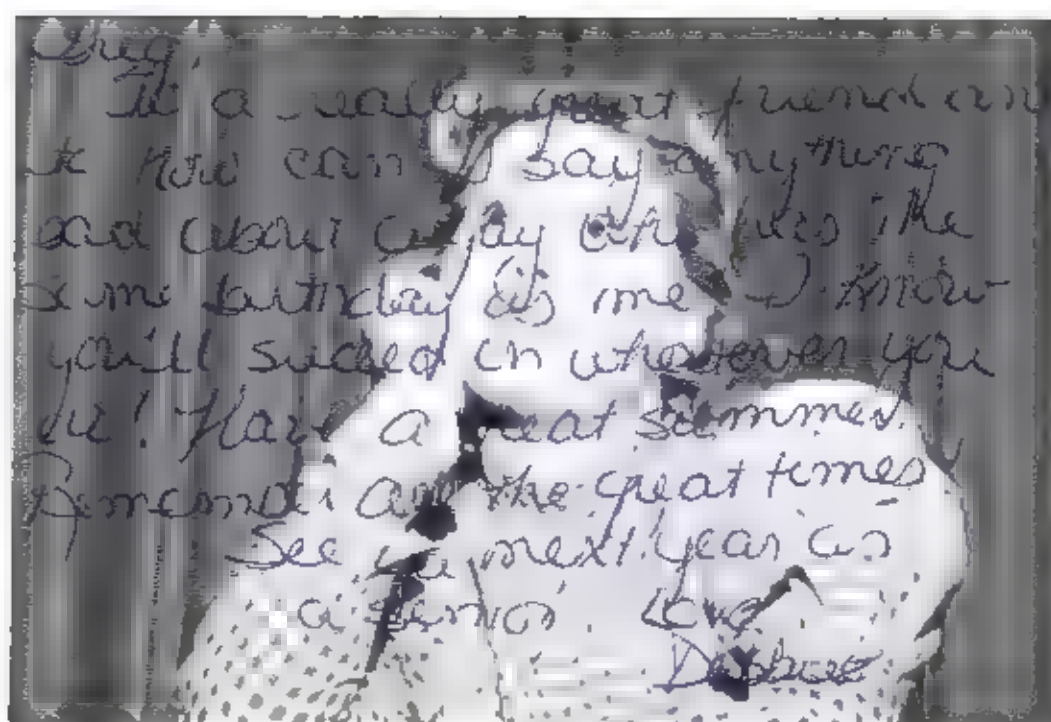 Greg,
a really great friend an
how can I say anything
bad about a guy who has the
same birthday as me. I know
you'll succed in whatever you
do! Have a great summer.
Remember all the great times!
See ya next year as
a senior. Love